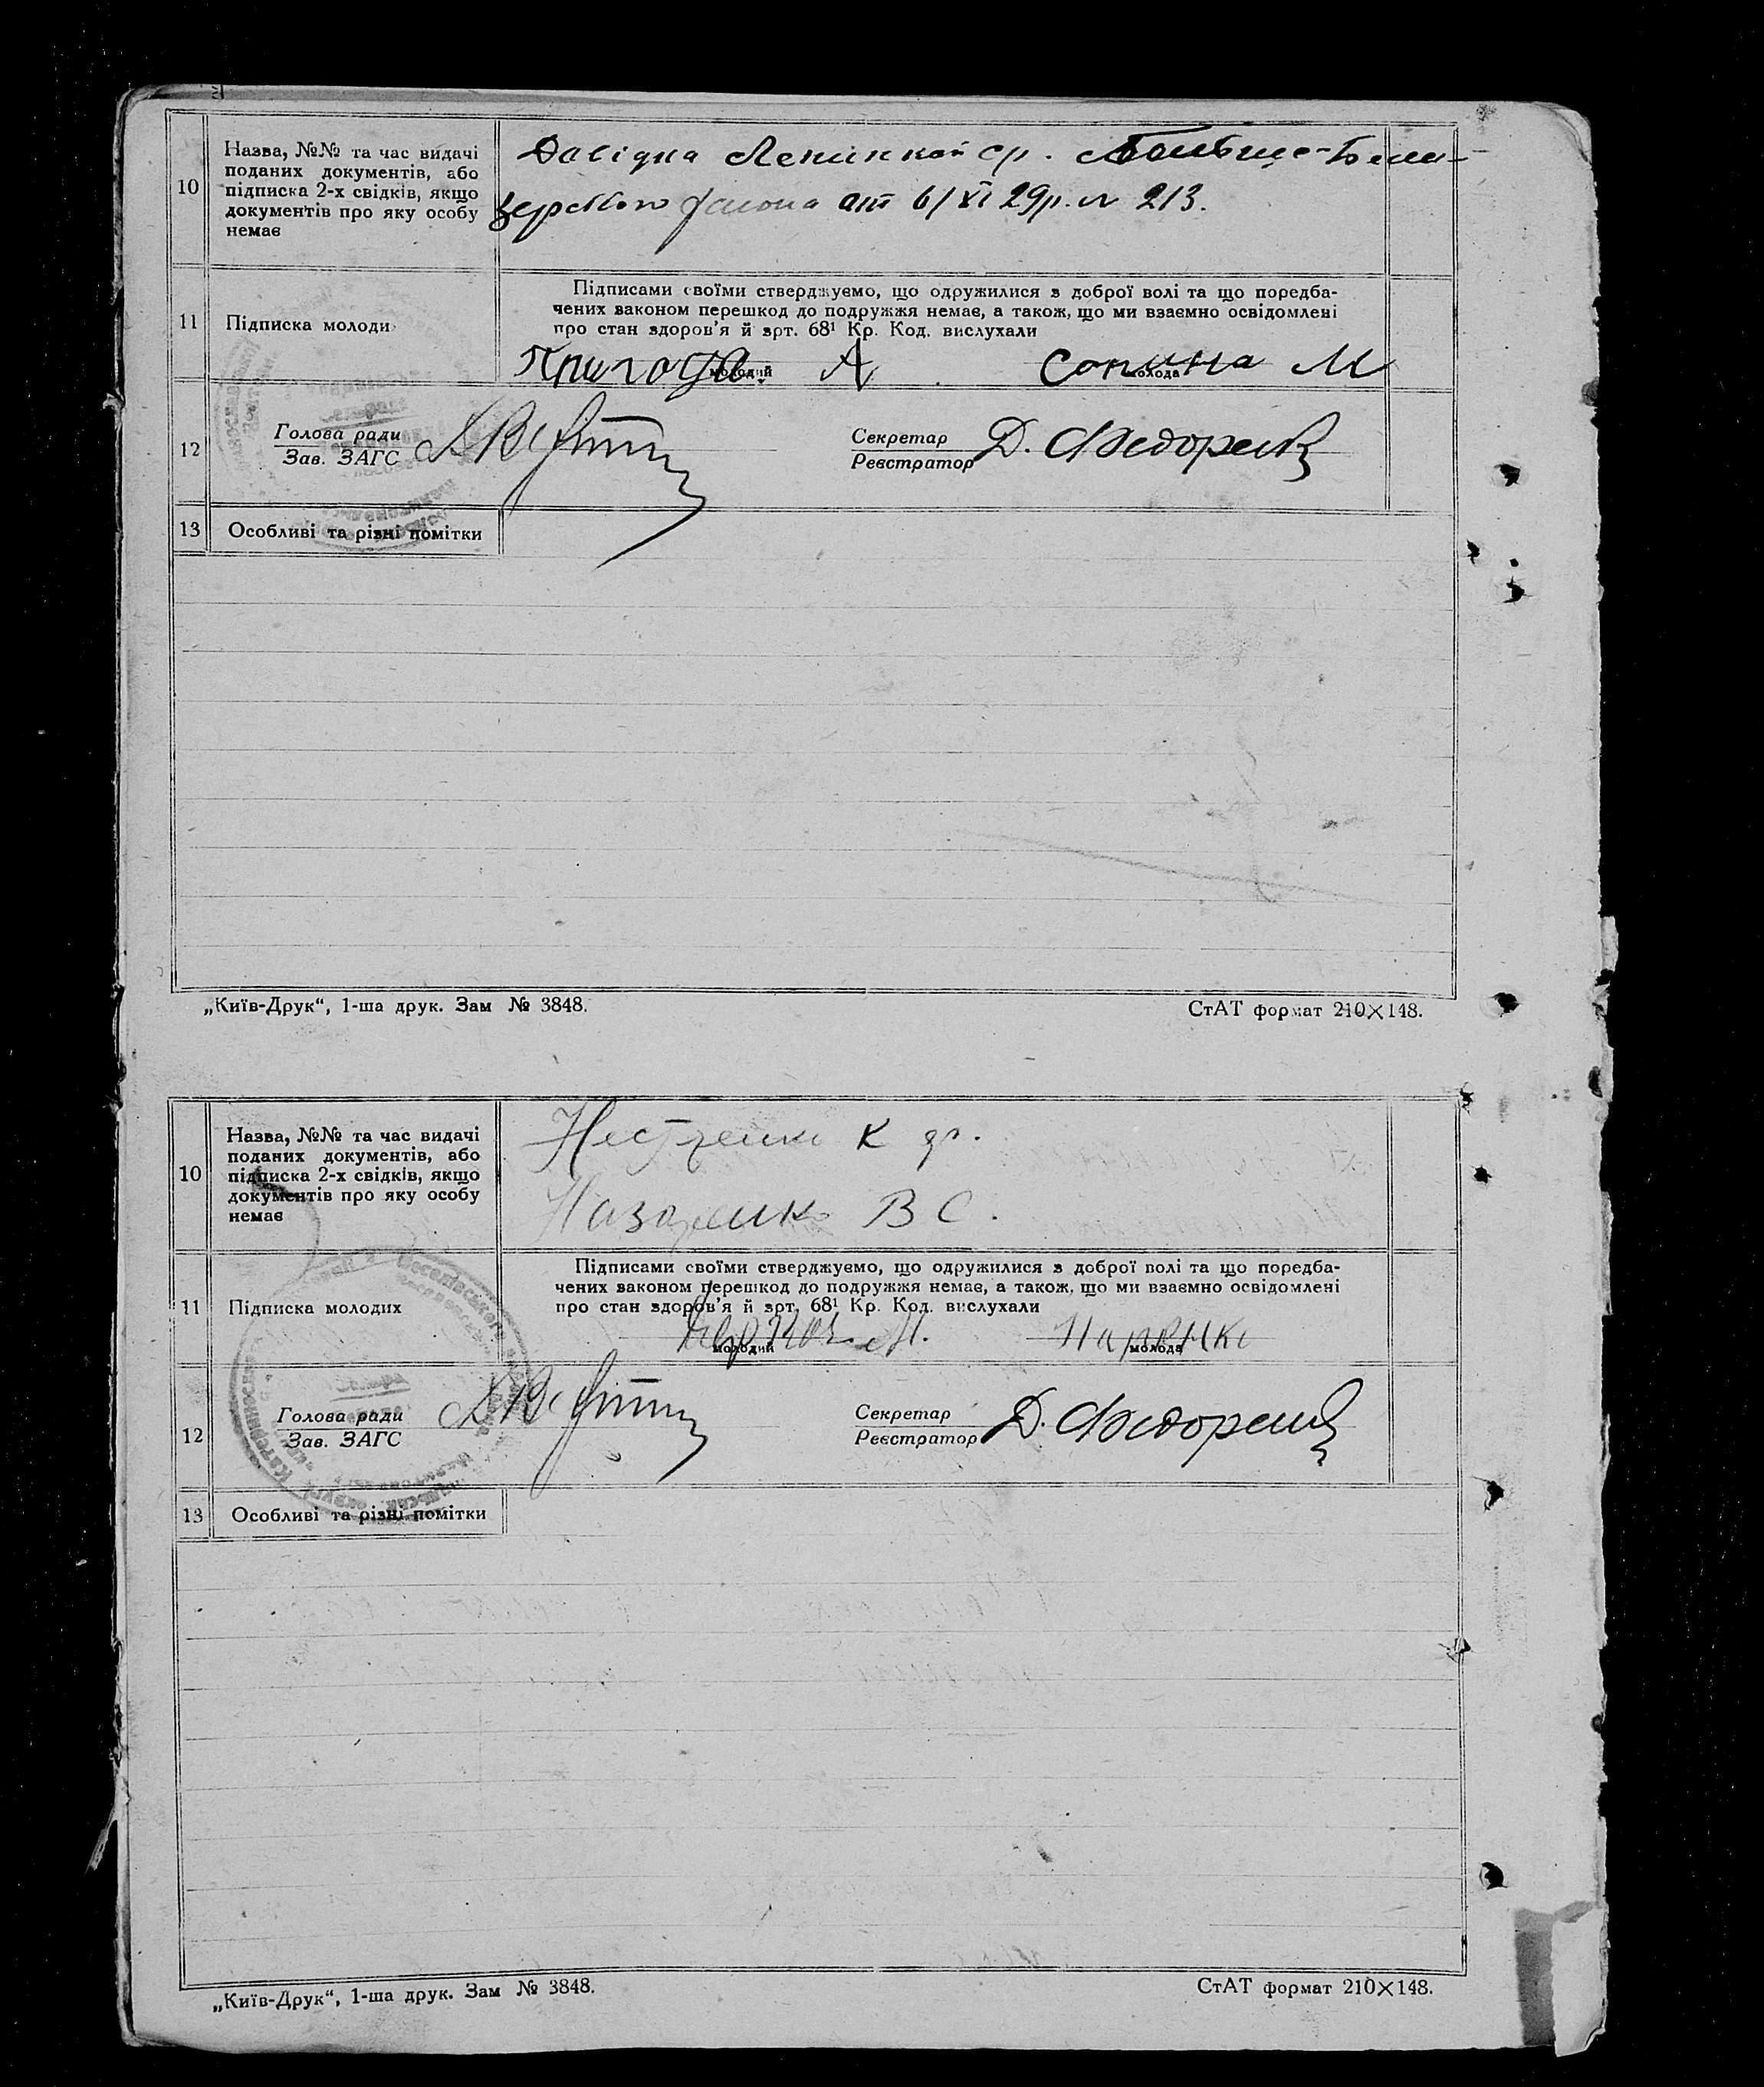 10
Назва, №№ та час видачі
поданих документів, або
підписка 2-х свідків, якщо
документів про яку особу
немає
Довідка Ленинкой ср. Большо-Бели-
зерского района от 6/XI 29р. № 213.
11
Підписка молоди
Підписами своїми стверджуємо, що одружилися з доброї волі та що поредба-
чених законом перешкод до подружжя немає, а також, що ми взаємно освідомлені
про стан здоров'я й арт. 68¹ Кр. Код. вислухали
Пригода А Сопина М
молодий молода
12
Голова ради
Зав. ЗАГС
Секретар Д. Федоренко
Реєстратор
13 Особливі та різні помітки
„Київ-Друк“, 1-ша друк. Зам № 3848. СтАТ формат 210×148.
10
Назва, №№ та час видачі
поданих документів, або
підписка 2-х свідків, якщо
документів про яку особу
немає
К
Назаренко В С.
11
Підписка молодих
Підписами своїми стверджуємо, що одружилися з доброї волі та що поредба-
чених законом перешкод до подружжя немає, а також, що ми взаємно освідомлені
про стан здоров'я й арт. 68¹ Кр. Код. вислухали
молодий молода
12
Голова ради
Зав. ЗАГС
Секретар Д. Федоренко
Реєстратор
13 Особливі та різні помітки
„Київ-Друк“, 1-ша друк. Зам № 3848. СтАТ формат 210×148.